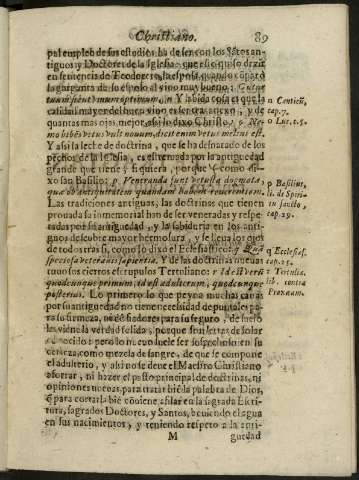 Christiano. 89
pal empleo de sus estudios ha de ser con los Sãtos an-
tiguos y Doctores de la Iglesia, que esso quiso dezir
en sentencia de Teodoreto, la esposa quando cõparò
la garganta de su esposo al vino muy bueno: Guttur
tuum sicut vinum optimum. n Y es sabida cosa es que la
calidad mayor del buen vino es ser trasanejo, y de
quantas mas ojas mejor, assi lo dixo Christo: o Ne-
mo bibẽs vetus vult nouum, dicit enim vetus melius est.
Y assi la leche de doctrina, que se ha de sacar de los
pechos de la Iglesia, es estremada por la antiguedad
grande que tiene y siguiera, porque como di-
xo san Basilio: p Veneranda sunt vetusta dogmata,
quæ ob antiquitatem quandam habent reuerentiam.
Las tradiciones antiguas, las doctrinas que tienen
prouada su inmemorial han de ser veneradas y respe-
tadas por su antiguedad, y la sabiduria en los anti-
guos descubre mayor hermosura, y se lleua los ojos
de todos tras si, como lo dixo el Ecclesiastico: q Quã
speciosa veteranis sapientia. Y de las doctrinas nueuas
tuuo sus ciertos escrupulos Tertuliano: r Id est verũ
quodcunque primum, id est adulterum, quodcunque
posterius. Lo primero lo que peyna muchas canas
por su antiguedad no tiene necessidad de puntales pa-
ra su firmeza, ni de fiadores para su seguro, de suelo
le viene la verdad ſelida, porque son letras de solar
conocido: pero lo nueuo suele ser sospechoso en su
certeza, como mezcla de sangre, de que se compone
el adulterio, y assi no se tiene el Maestro Christiano
aforrar, ni hazer el pasto principal de doctrinas, ni
opiniones nueuas para tratar biẽ la palabra de Dios,
q̃ para cortarla biẽ cõuiene afilar en la sagrada Escri-
tura, sagrados Doctores, y Santos, beuiendo el agua
en sus nacimientos, y teniendo respeto a la anti-
M guedad
n Canticũ,
cap.7.
o Luc. c.5.
p Basilius,
li. de Spiri-
tu sancto,
cap.29.
q Ecclesias.
cap.25.
r Tertulia.
lib. contra
Praxeam.